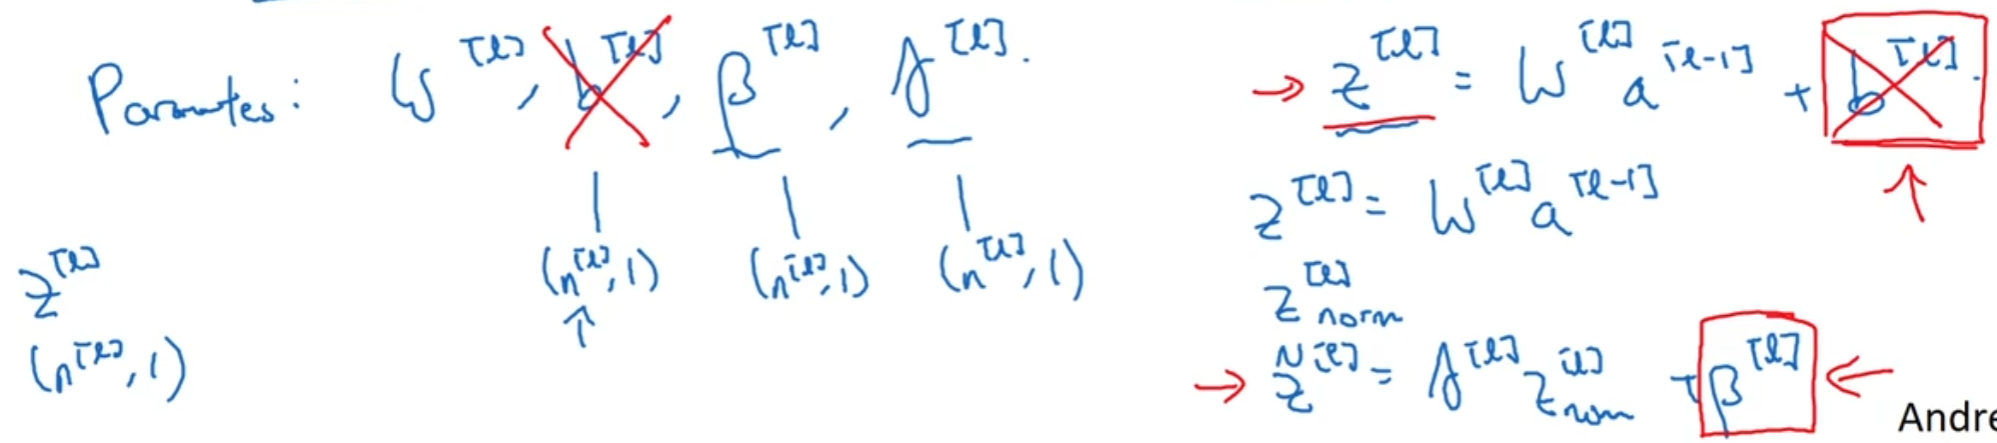 Paramtes: W^[l], b^[l], β^[l], γ^[l].
(n^[l], 1) (n^[l], 1) (n^[l], 1)
z^[l]
(n^[l], 1)
→ z^[l] = W^[l] a^[l-1] + b^[l].
z^[l] = W^[l] a^[l-1]
z^[l]_norm
→ z̃^[l] = γ^[l] z^[l]_norm + β^[l] ←
Andre